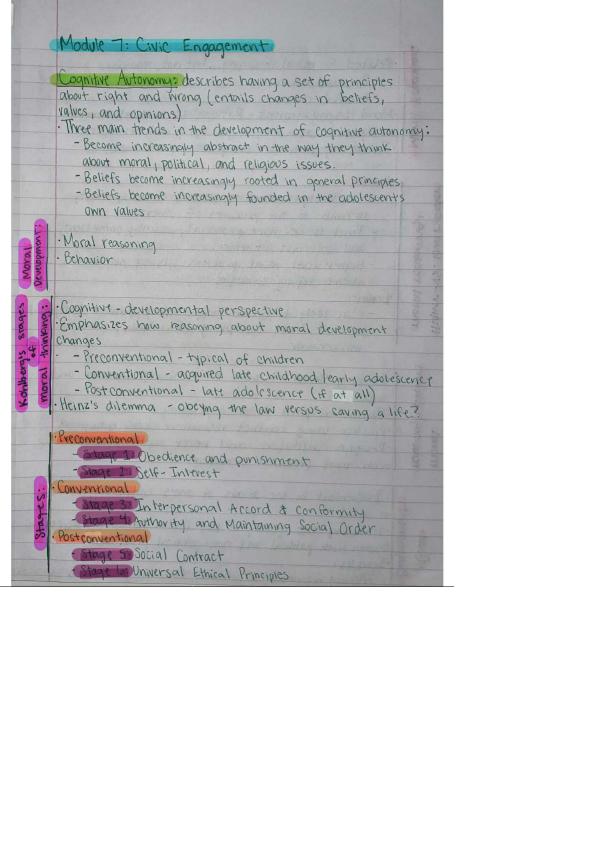 Module 7: Civic Engagement
Cognitive Autonomy: describes having a set of principles
about right and wrong (entails changes in beliefs,
values, and opinions)
· Three main trends in the development of cognitive autonomy:
- Become increasingly abstract in the way they think
about moral, political, and religious issues.
- Beliefs become increasingly rooted in general principles
- Beliefs become increasingly founded in the adolescent's
own values
Moral
Development:
· Moral reasoning
· Behavior
Kohlberg's stages
of
moral thinking:
· Cognitive - developmental perspective
· Emphasizes how reasoning about moral development
changes
- Preconventional - typical of children
- Conventional - acquired late childhood/early adolescence
- Postconventional - late adolescence (if at all)
· Heinz's dilemma - obeying the law versus saving a life?
Stages:
· Preconventional
- Stage 1: Obedience and punishment
- Stage 2: Self-Interest
· Conventional
- Stage 3: Interpersonal Accord & Conformity
- Stage 4: Authority and Maintaining Social Order
· Postconventional
- Stage 5: Social Contract
- Stage 6: Universal Ethical Principles